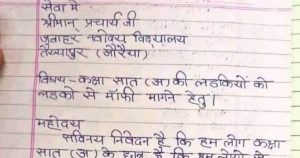 सेवा में
श्रीमान् प्रचार्य जी
जवाहर नवोदय विद्यालय
तैय्यापुर (औरैया)
विषय - कक्षा सात (अ) की लडकियों को
लडको से माँफी मागने हेतु।
महोदय
सविनय निवेदन है कि हम लोग कक्षा
सात (अ) के छात्र हैं कि हम लोगो ने